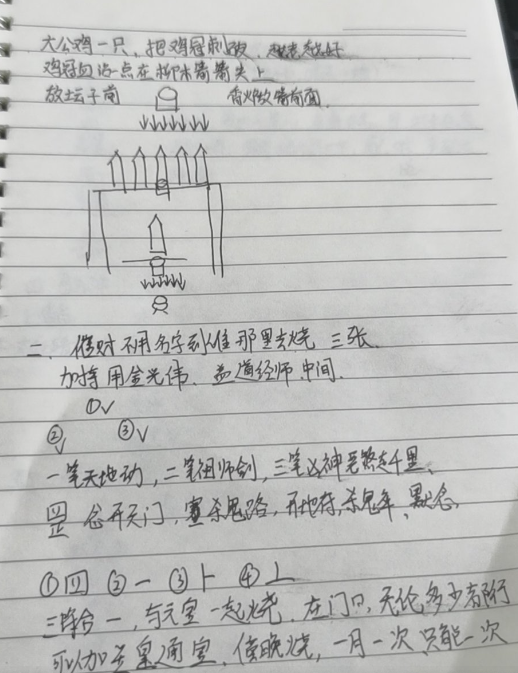 大公鸡一只，把鸡冠刺破，越老越好
鸡冠血点在柳木箭箭头上
放坛子前 香炉放箭前面
二、借财 不用名字到谁那里去烧 三张
加持用金光伟、孟道经师 中间
①∨
② ③∨
一笔天地动，二笔祖师剑，三笔凶神恶煞走千里
罡 念 开天门，塞 杀鬼路，杀鬼卒，默念
①四 ②一 ③卜 ④⊥
三 合一，与元宝一起烧，在门口，无论多少都行
可以加天皇通宝，傍晚烧，一月一次 只能一次